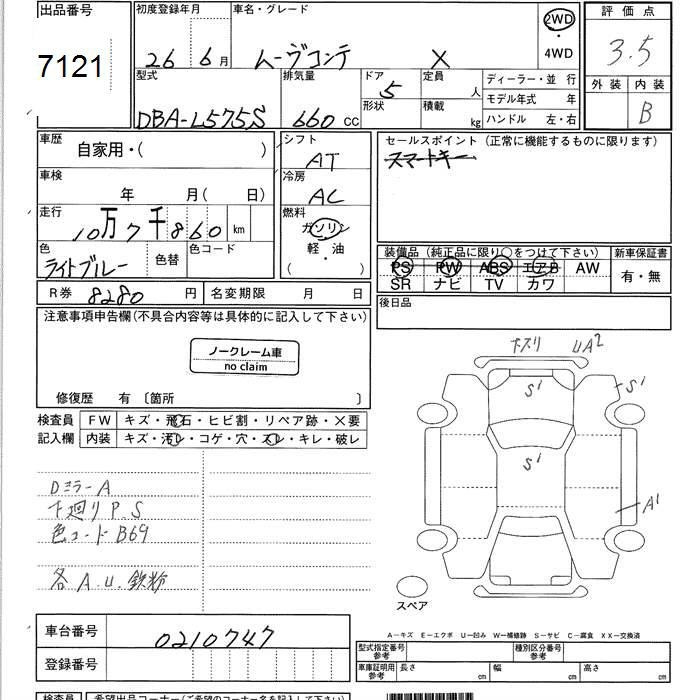 出品番号
7121
初度登録年月
26 6月
車名・グレード
ムーヴコンテ X
2WD
・
4WD
評価点
3.5
外装 内装
B
型式
DBA-L575S
排気量
660 CC
ドア
5
形状
定員
人
積載
kg
ディーラー・並 行
モデル年式 年
ハンドル 左・右
車歴
自家用・( )
車検
年 月( 日)
走行
10万7千860 km
色
ライトブルー
色替
色コード
R券 8280 円
名変期限 月 日
シフト
AT
冷房
AC
燃料
ガソリン
軽・油
( )
セールスポイント (正常に機能するものに限ります)
スマートキー
装備品 (純正品に限り○をつけて下さい)
PS PW ABS エアB AW
SR ナビ TV カワ
新車保証書
有・無
後日品
注意事項申告欄(不具合内容等は具体的に記入して下さい)
ノークレーム車
no claim
修復歴 有 〔箇所 〕
検査員
記入欄
FW キズ・飛石・ヒビ割・リペア跡・X要
内装 キズ・汚レ・コゲ・穴・スレ・キレ・破レ
Dミラー A
下廻り P S
色コード B69
各 A.U.鉄粉
キズリ UA2
S1
S1
S1
A1
スペア
車台番号 0210747
登録番号
A―キズ E―エクボ U―凹み W―補修跡 S―サビ C―腐食 XX―交換済
型式指定番号
参考
種別区分番号
参考
車庫証明用
参考
長さ cm
幅 cm
高さ cm
検査員
希望出品コーナー(ご希望のコーナー名を記入して下さい)